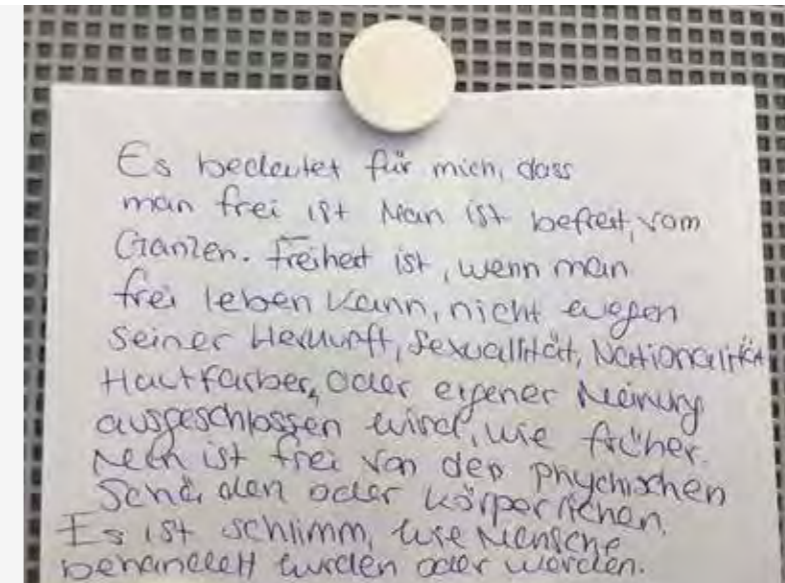 Es bedeutet für mich, dass
man frei ist Man ist befreit, vom
Ganzen. Freiheit ist, wenn man
frei leben kann, nicht wegen
seiner Herkunft, Sexualität, Nationalität
Hautfarbe, oder eigener Meinung
ausgeschlossen wird, wie früher.
Man ist frei von den phychischen
Schäden oder körperlichen.
Es ist schlimm, wie Mensche
behandelt wurden oder werden.